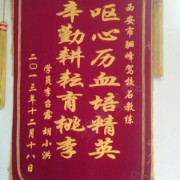 西安市翻峰驾校石教练
呕心历血培精英
辛勤耕耘育桃李
学员李台露 胡小洪
二〇一三年十二月十八日